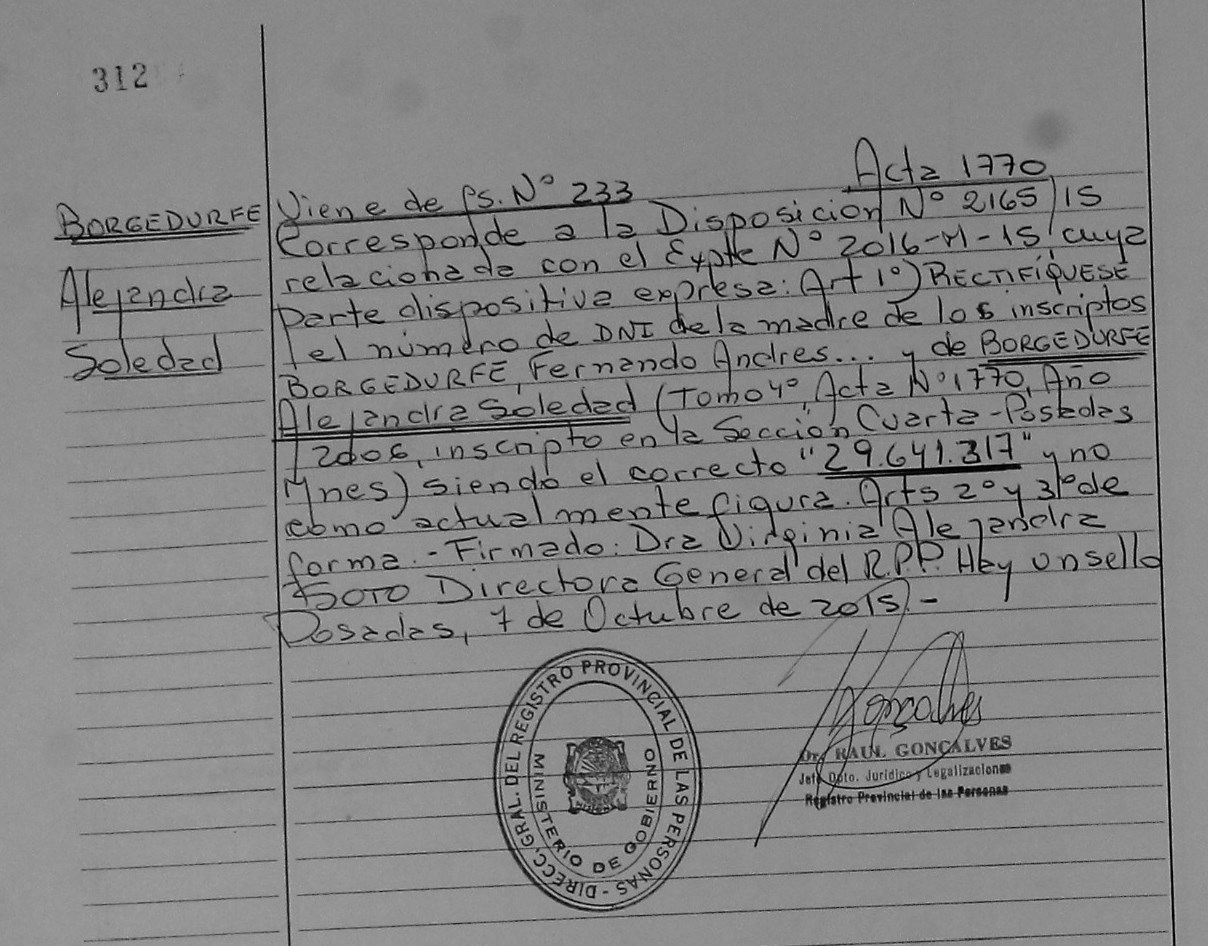 312
Acta 1770
BORGEDURFE
Alejandra
Soledad
Viene de fs. Nº 233
Corresponde a la Disposicion Nº 2165/15
relacionada con el Expte Nº 2016-M-15, cuya
Parte dispositiva expresa: Art 1º) RECTIFÍQUESE
el número de DNI de la madre de los inscriptos
BORGEDURFE, Fernando Andres... y de BORGEDURFE
Alejandra Soledad (Tomo 4º, Acta Nº 1770, Año
2006, inscripto en la Sección Cuarta-Posadas
Mnes) siendo el correcto "29.641.317" y no
como actualmente figura. Arts 2º y 3º de
forma.- Firmado: Dra Virginia Alejandra
SOTO Directora General del R.P.P. Hay un sello
Posadas, 7 de Octubre de 2015.-
DIRECC. GRAL. DEL REGISTRO PROVINCIAL DE LAS PERSONAS -
MINISTERIO DE GOBIERNO
Gonçalves
Dr. RAUL GONÇALVES
Jefe Dpto. Jurídico y Legalizaciones
Registro Provincial de las Personas